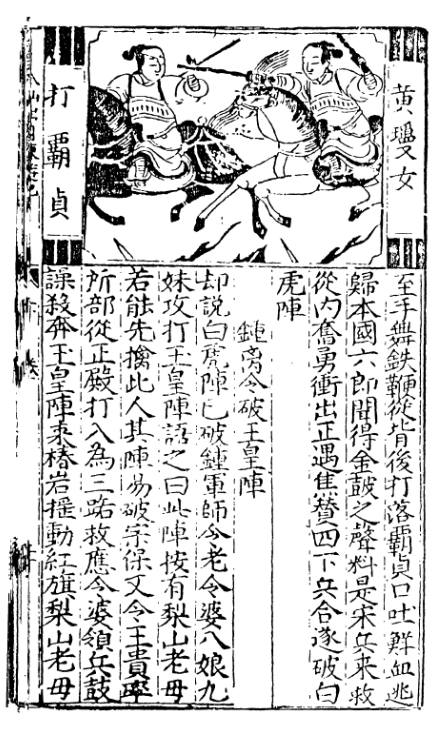 黃瓊女
打霸貞
至手舞鉄鞭從背後打落霸貞口吐鮮血逃
歸本國六郎聞得金鼓之聲料是宋兵來救
從內奮勇衝出正遇焦贊四下兵合遂破白
虎陣
鍾令破玉皇陣
却説白虎陣已破鍾軍師令老令婆八娘九
妹攻打玉皇陣語之曰此陣按有梨山老母
若能先擒此人其陣易破宗保又令王貴率
所部從正殿打入為三路救應令婆領兵鼓
譟殺奔玉皇陣來椿岩摇動紅旗梨山老母